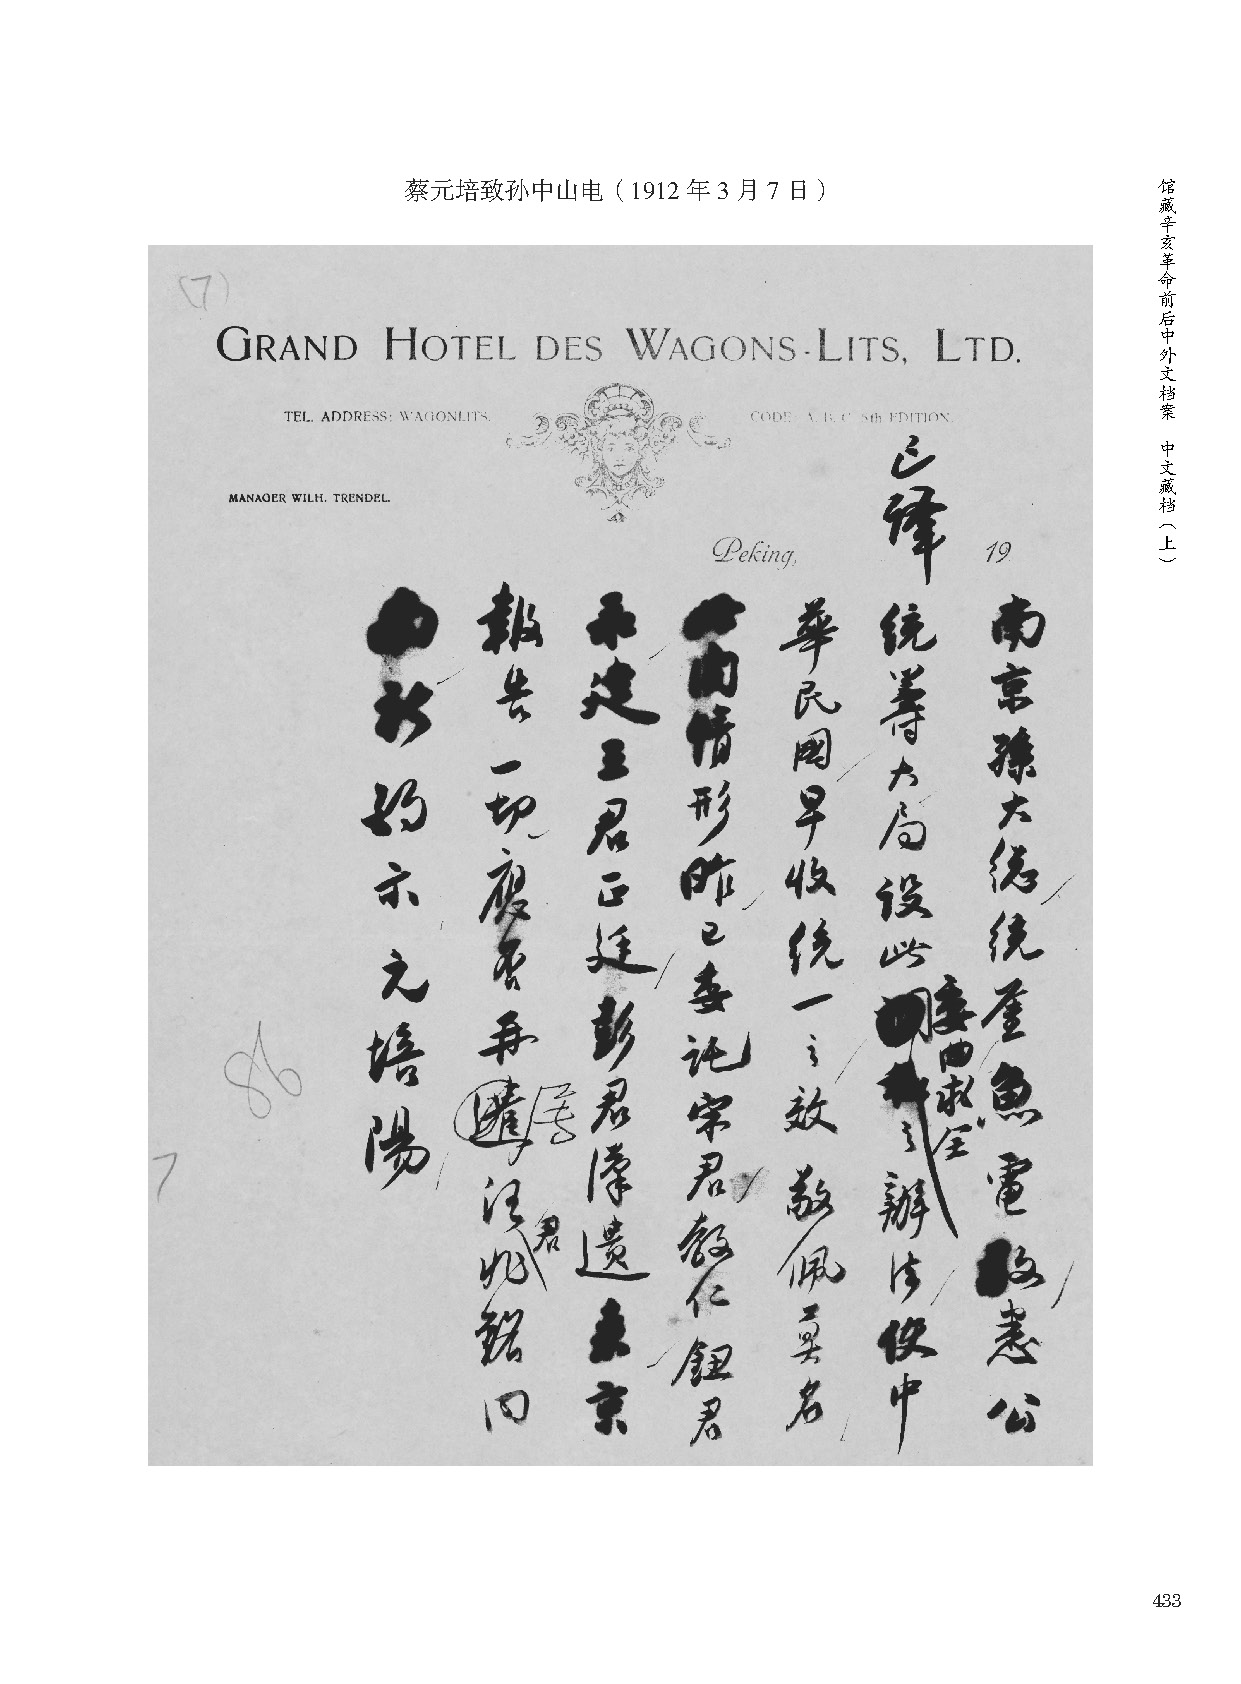 蔡元培致孙中山电（1912年3月7日）
馆藏辛亥革命前后中外文档案 中文藏档（上）
(7)
GRAND HOTEL DES WAGONS-LITS, LTD.
TEL. ADDRESS: WAGONLITS.
CODE: A. B. C. 5th EDITION.
MANAGER WILH. TRENDEL.
Peking,
19
已譯
南京孫大總統鉴魚電敬悉公
统筹大局设此委曲求全之辦法使中
華民國早收统一之效敬佩莫名
内情形昨已委託宋君教仁鈕君
永建王君正廷彭君漢遺来京
報告一切應否再匯汪君兆銘同
约示元培陽
86
7
433